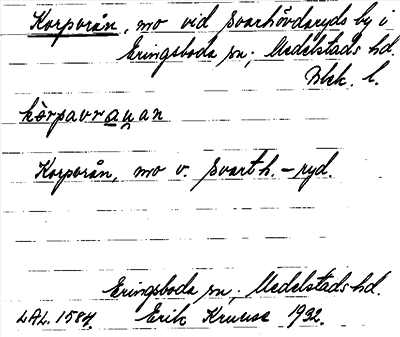 Korpvrån, mo vid Svarthövdaryds by i
Eringsboda sn; Medelstads hd.
Blek. l.
kòrpavrauan
Korpvrån, mo v. Svarth.-ryd.
Eringsboda sn; Medelstads hd.
LAL. 1584. Erik Kruuse 1932.